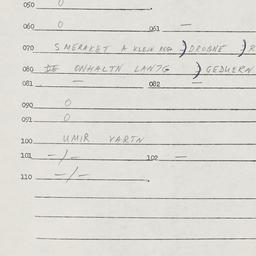 050 0
060 0 061 —
070 SMERAKET A KLEIN )DROBNE )R
080 ONHALTN LANTG )GEDUERN
081 — 082 —
090 0
091 0
100 UMIR VARTN
101 —/— 102 —
110 —/—